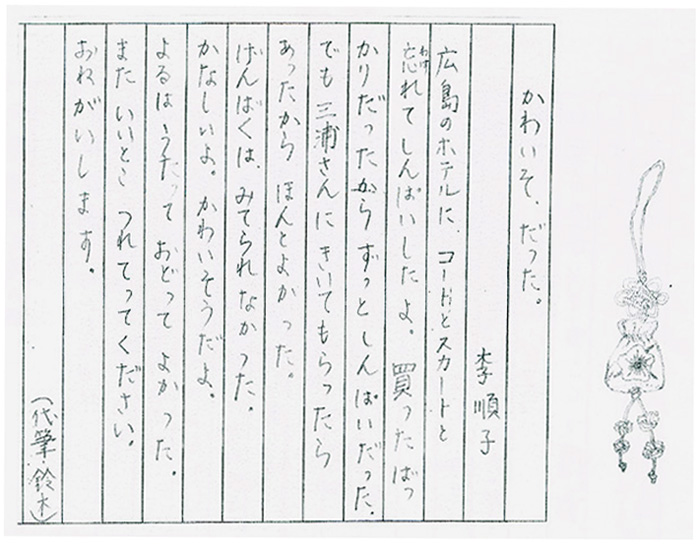 かわいそ、だった。
李順子
広島のホテルに、コードとスカートと
忘れてしんぱいしたよ。買ったばっ
かりだったからずっとしんぱいだった。
でも三浦さんにきいてもらったら
あったから ほんとよかった。
げんばくは、みてられなかった。
かなしいよ。かわいそうだよ。
よるはうたって おどって よかった。
また いいとこ つれてってください。
おねがいします。
(代筆 鈴木)